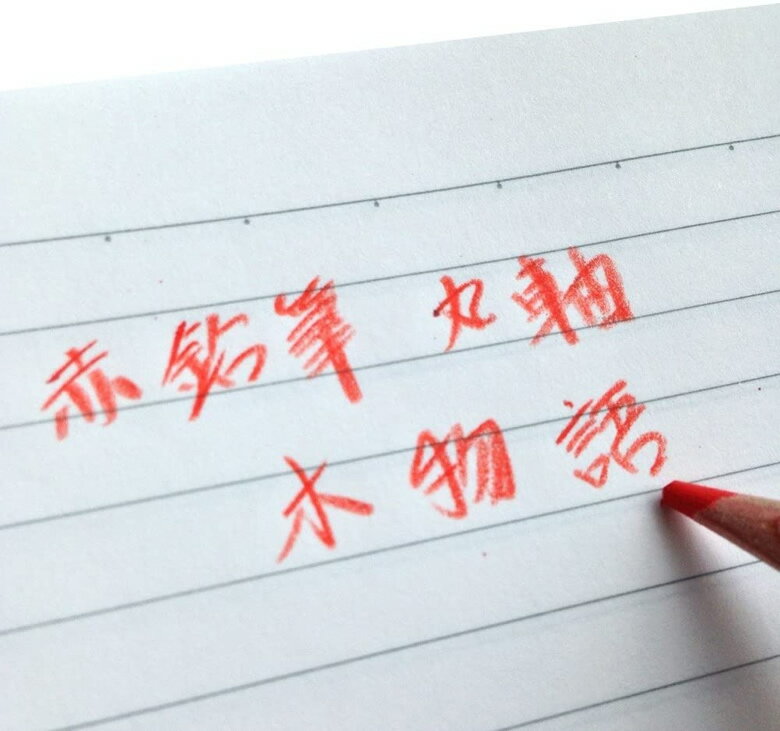 赤鉛筆 丸軸
木物語